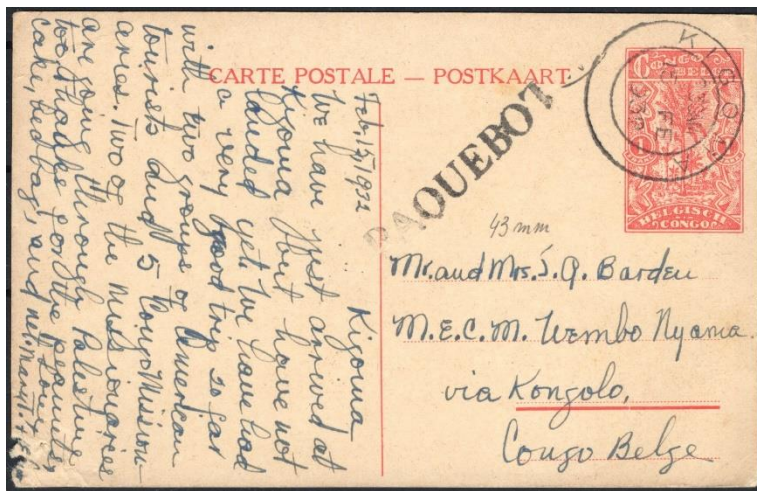 CARTE POSTALE — POSTKAART
PAQUEBOT
KIGOMA
15 FE
BELGISCH
CONGO
43 mm
Mr. and Mrs. S. Q. Barden
M.E.C.M. Wembo Nyama
via Kongolo,
Congo Belge
Kigoma
Feb. 15, 1932
We have just arrived at
Kigoma but have not
landed yet. We have had
a very good trip so far
with two groups of American
tourists and 5 Congo Mission-
aries. Two of the missionaries
are going through Palestine
too. Thanks for the peanuts,
cake, bed bag, and net.